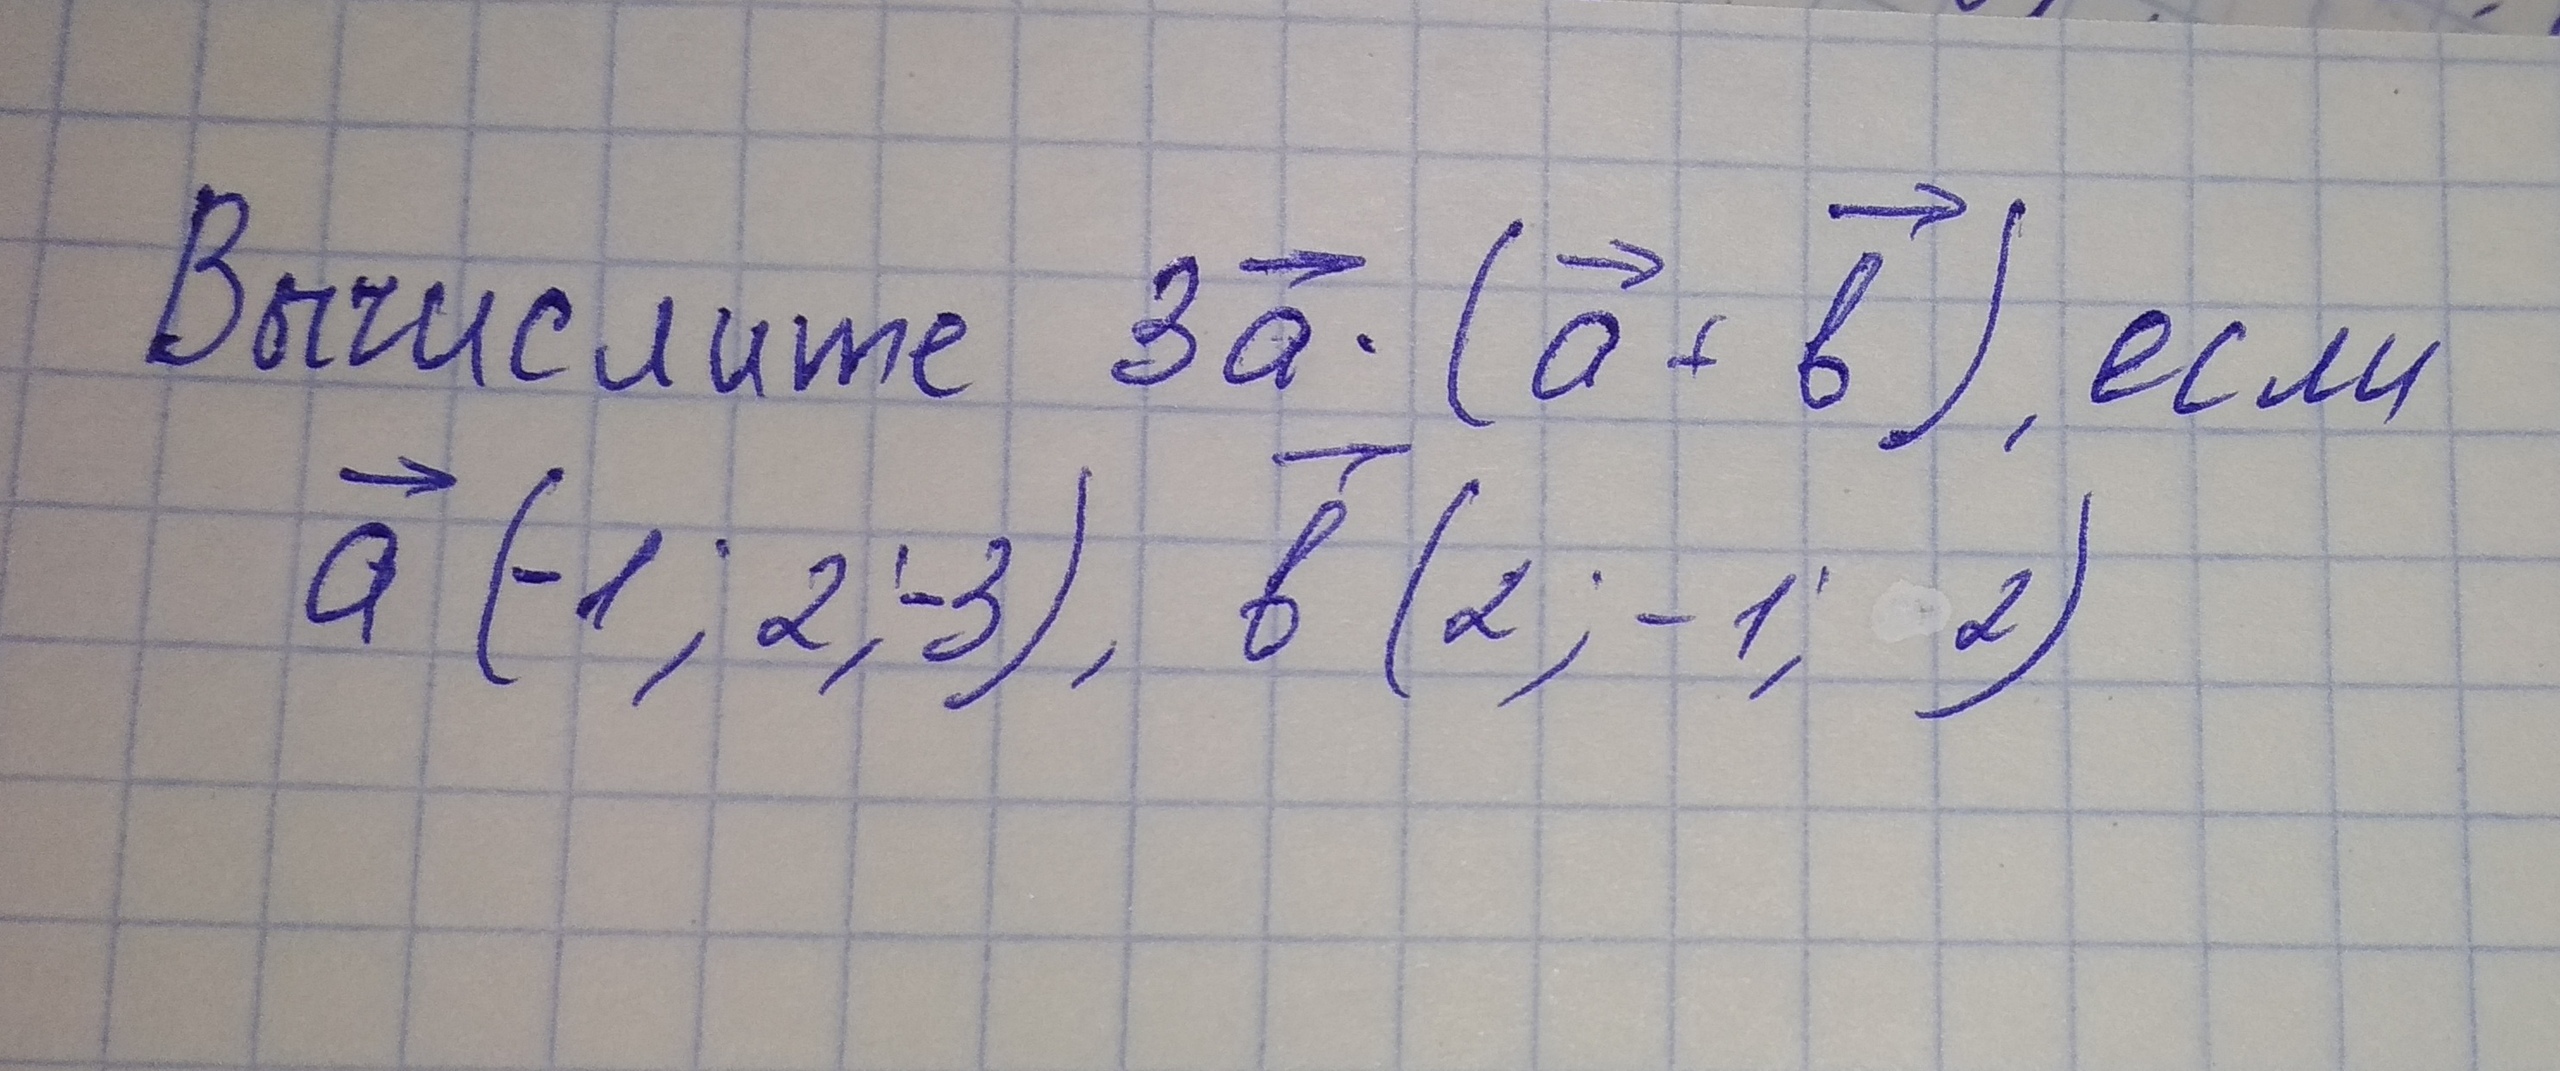 Вычислите 3a⃗ · (a⃗ + b⃗), если
a⃗ (-1; 2; -3), b⃗ (2; -1; 2)